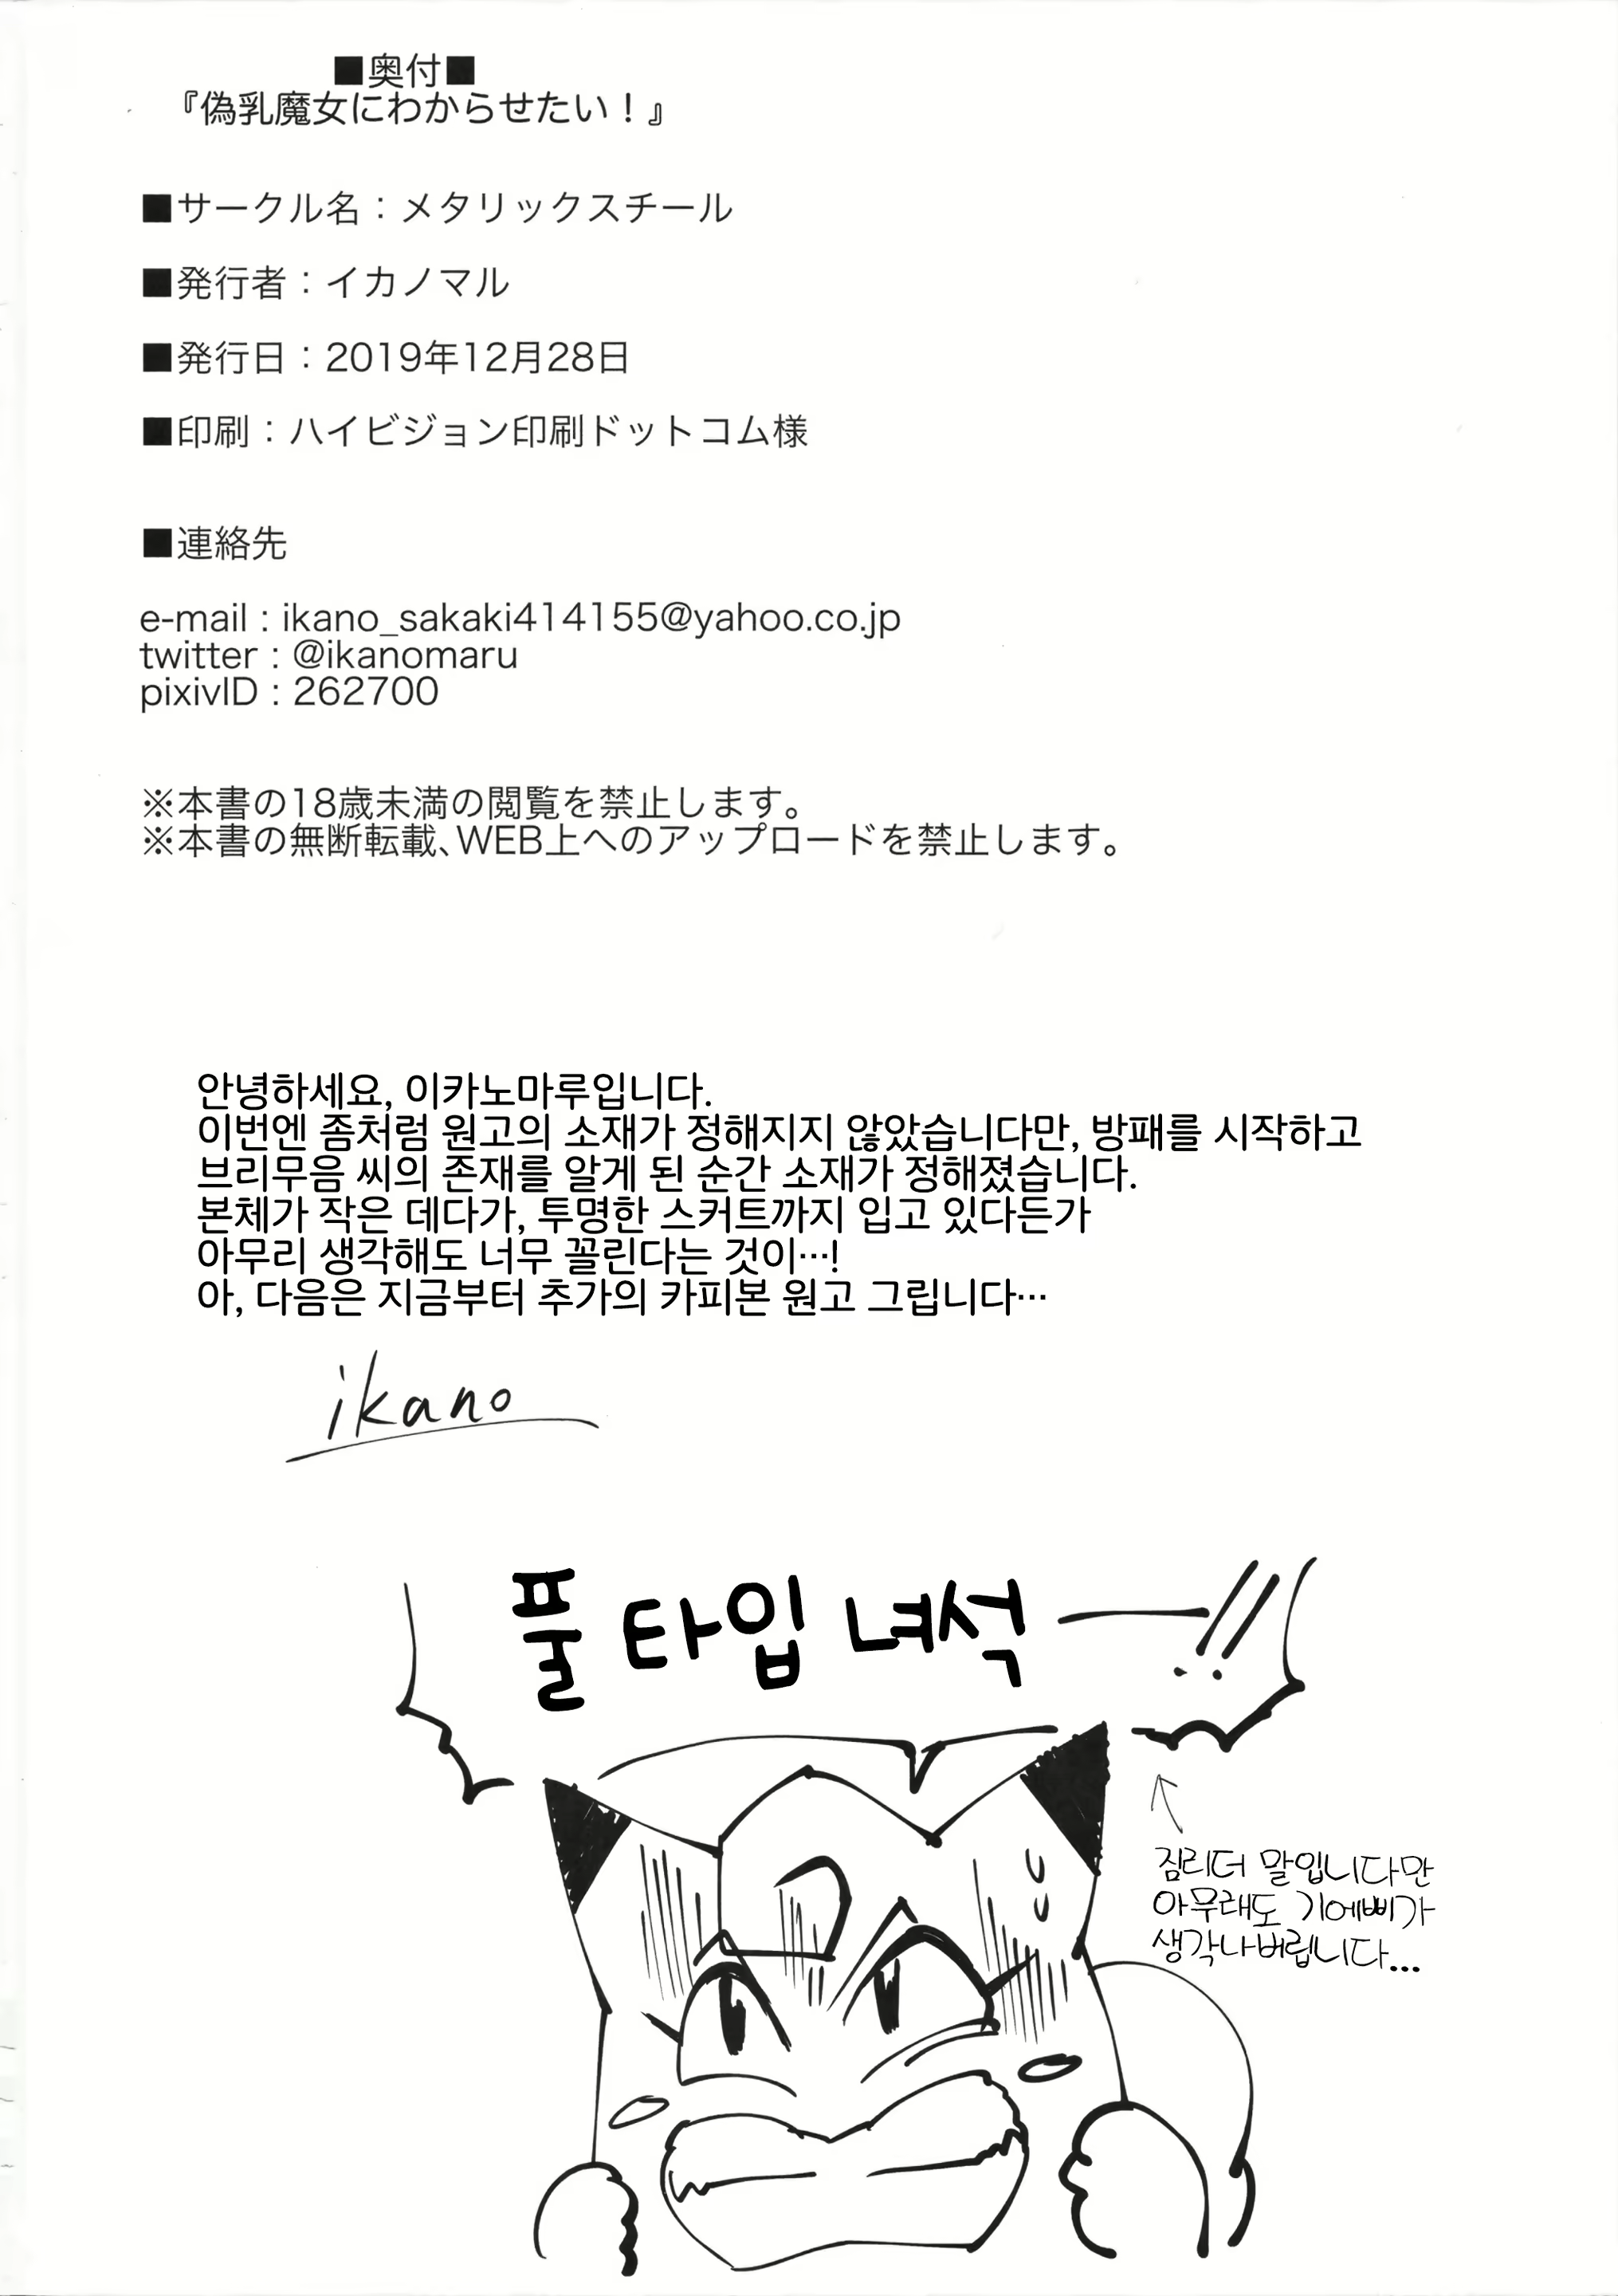 ■奥付■
『偽乳魔女にわからせたい！』
■サークル名：メタリックスチール
■発行者：イカノマル
■発行日：2019年12月28日
■印刷：ハイビジョン印刷ドットコム様
■連絡先
e-mail : ikano_sakaki414155@yahoo.co.jp
twitter : @ikanomaru
pixivID : 262700
※本書の18歳未満の閲覧を禁止します。
※本書の無断転載、WEB上へのアップロードを禁止します。
안녕하세요, 이카노마루입니다.
이번엔 좀처럼 원고의 소재가 정해지지 않았습니다만, 방패를 시작하고
브리무음 씨의 존재를 알게 된 순간 소재가 정해졌습니다.
본체가 작은 데다가, 투명한 스커트까지 입고 있다든가
아무리 생각해도 너무 꼴린다는 것이…!
아, 다음은 지금부터 추가의 카피본 원고 그립니다…
ikano
풀 타입 녀석ー!!
짐리더 말입니다만
아무래도 기에삐가
생각나버립니다...